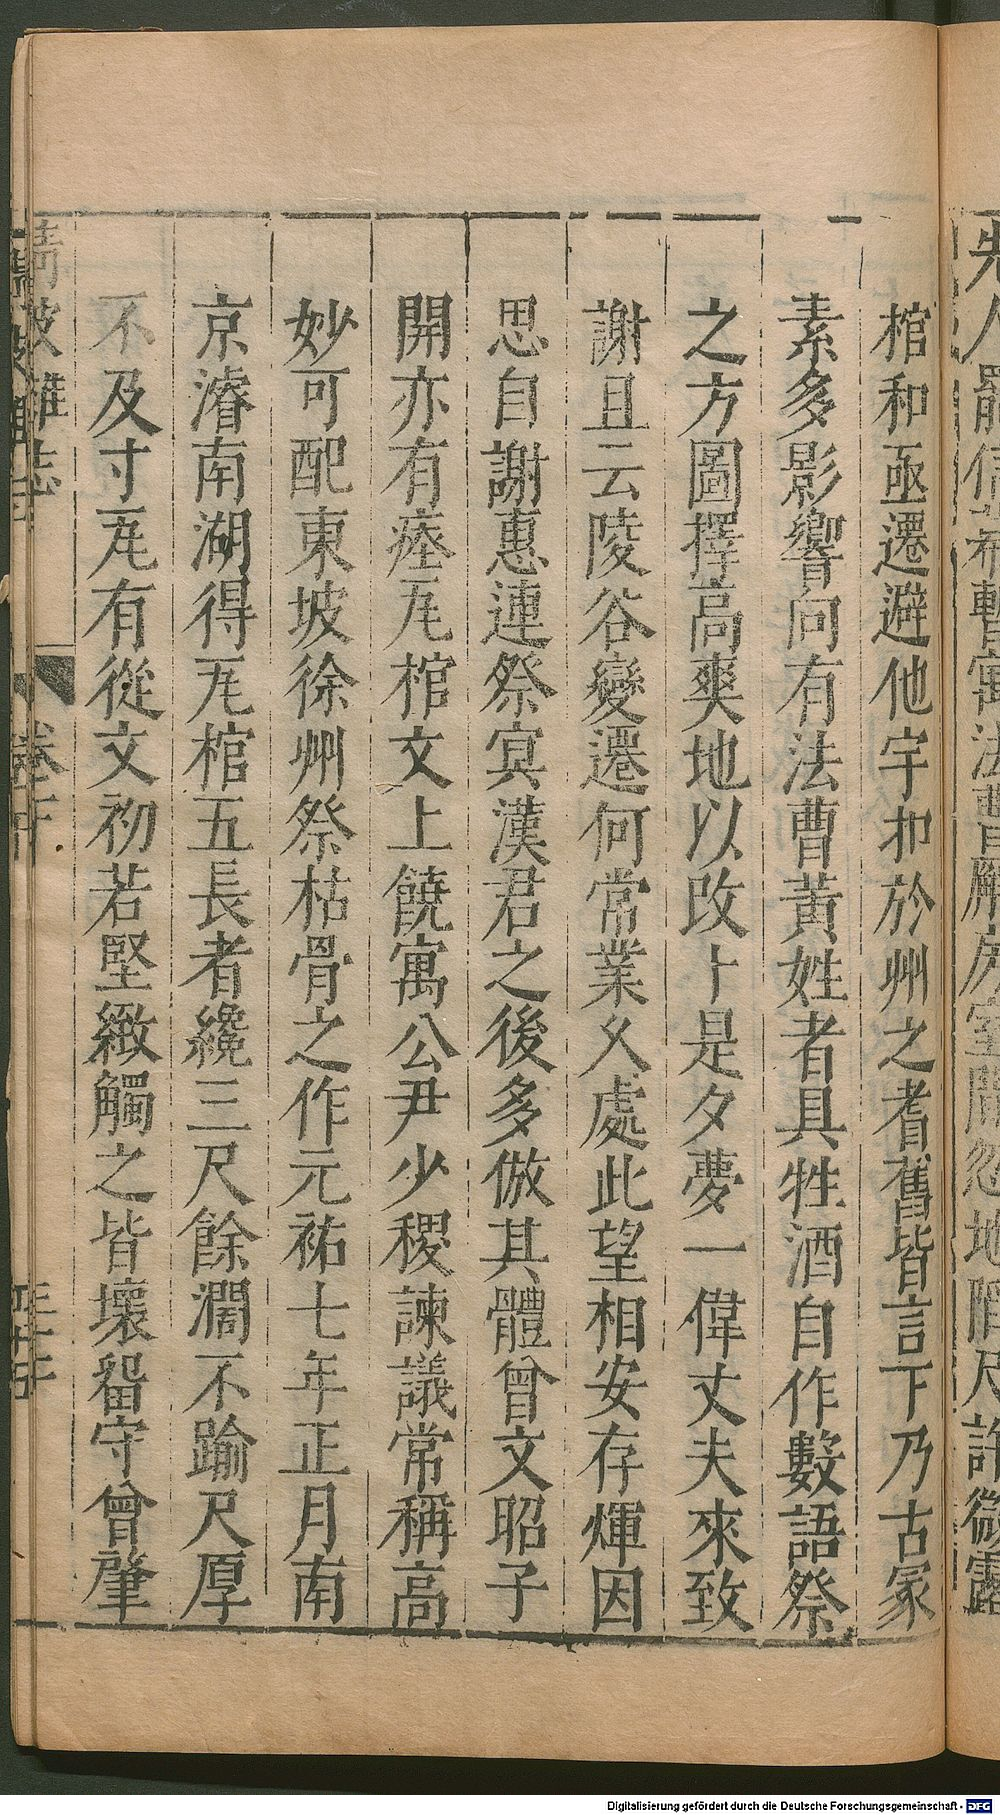 棺和亟遷避他宇扣於州之耆舊皆言下乃古冢
素多影響向有法曹黃姓者具牲酒自作數語祭
之方圖擇高爽地以改卜是夕夢一偉丈夫來致
謝且云陵谷變遷何常業久處此望相安存煇因
思自謝惠連祭冥漠君之後多倣其體曾文昭子
開亦有瘞瓦棺文上饒寓公尹少稷諫議常稱高
妙可配東坡徐州祭枯骨之作元祐七年正月南
京濬南湖得瓦棺五長者纔三尺餘濶不踰尺厚
不及寸瓦有從文初若堅緻觸之皆壞留守曾肇
清波雜志
Digitalisierung gefördert durch die Deutsche Forschungsgemeinschaft - DFG